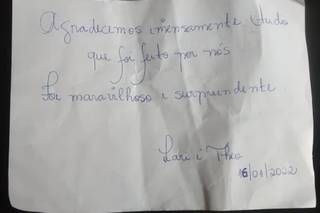 Agradecemos imensamente tudo
que foi feito por nós
Foi maravilhoso e surpreendente
Lari e Theo
16/01/2022